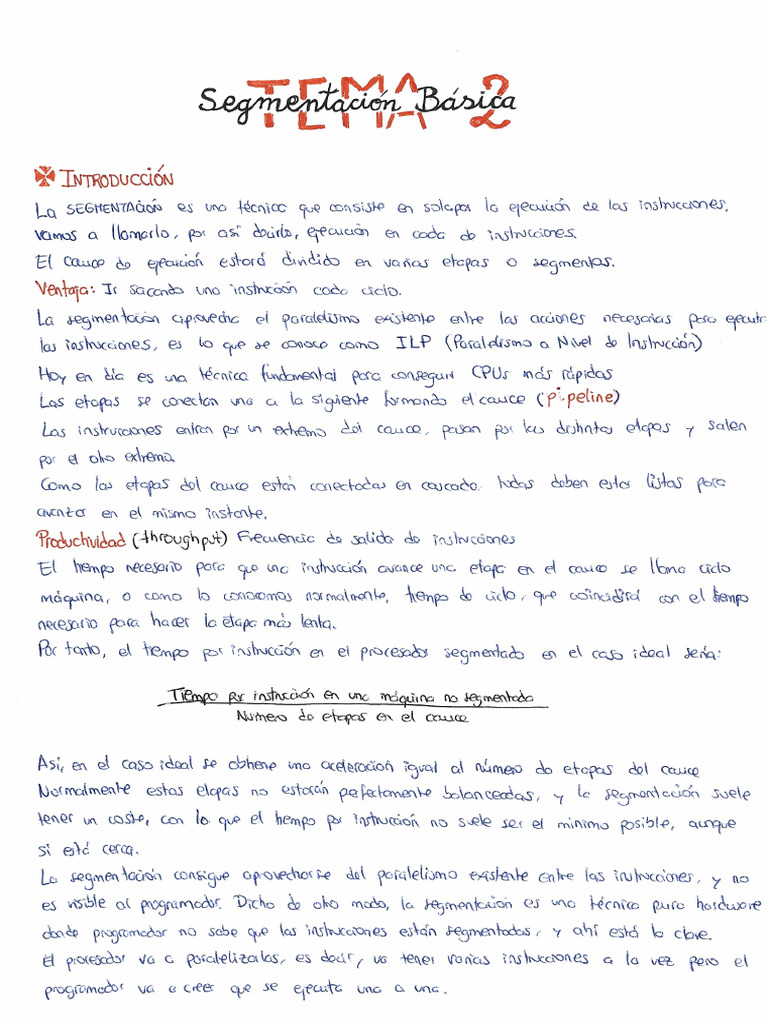 TEMA 2
Segmentación Básica
INTRODUCCIÓN
La SEGMENTACIÓN es una técnica que consiste en solapar la ejecución de las instrucciones,
vamos a llamarlo, por así decirlo, ejecución en cada de instrucciones.
El cauce de ejecución estará dividido en varias etapas o segmentos.
Ventaja: Ir sacando una instrucción cada ciclo.
La segmentación aprovecha el paralelismo existente entre las acciones necesarias para ejecutar
las instrucciones, es lo que se conoce como ILP (Paralelismo a Nivel de Instrucción)
Hoy en día es una técnica fundamental para conseguir CPUs más rápidas
Las etapas se conectan una a la siguiente formando el cauce (pipeline)
Las instrucciones entran por un extremo del cauce, pasan por las distintas etapas y salen
por el otro extremo.
Como las etapas del cauce están conectadas en cascada. todas deben estar listas para
avanzar en el mismo instante.
Productividad (throughput) Frecuencia de salida de instrucciones
El tiempo necesario para que una instrucción avance una etapa en el cauce se llama ciclo
máquina, o como lo conocemos normalmente, tiempo de ciclo, que coincidirá con el tiempo
necesario para hacer la etapa más lenta.
Por tanto, el tiempo por instrucción en el procesador segmentado en el caso ideal sería:
Tiempo por instrucción en una máquina no segmentada
Numero de etapas en el cauce
Asi, en el caso ideal se obtiene una aceleración igual al número de etapas del cauce
Normalmente estas etapas no estarán perfectamente balanceadas, y la segmentación suele
tener un coste, con lo que el tiempo por instrucción no suele ser el mínimo posible, aunque
si está cerca.
La segmentación consigue aprovecharse del paralelismo existente entre las instrucciones, y no
es visible al programador. Dicho de otro modo, la segmentación es una técnica pura hardware
donde programador no sabe que las instrucciones están segmentadas, y ahí está la clave.
El procesador va a paralelizarlas, es decir, va tener varias instrucciones a la vez pero el
programador va a creer que se ejecuta una a una.